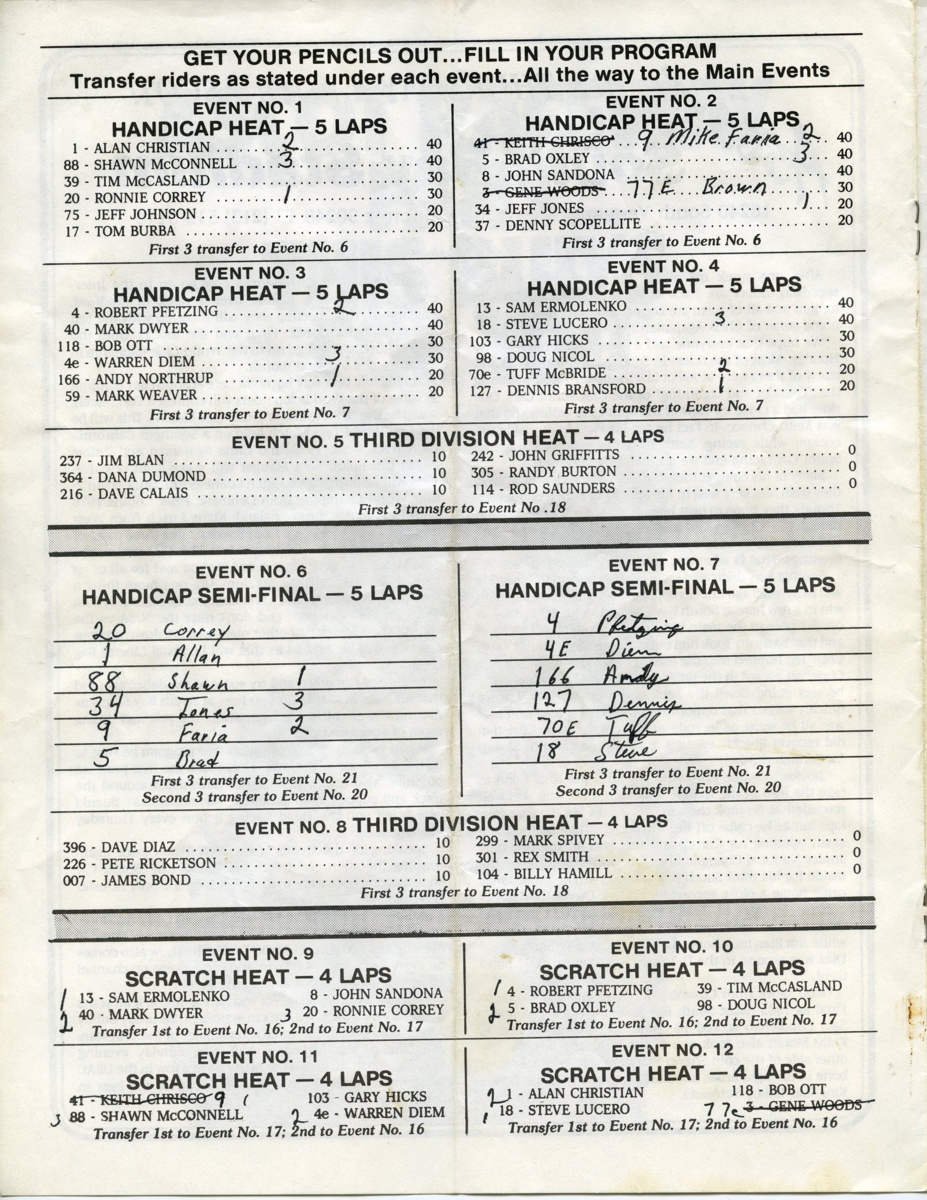 GET YOUR PENCILS OUT...FILL IN YOUR PROGRAM
Transfer riders as stated under each event...All the way to the Main Events
EVENT NO. 1
HANDICAP HEAT — 5 LAPS
1 - ALAN CHRISTIAN 2 40
88 - SHAWN McCONNELL 3 40
39 - TIM McCASLAND 30
20 - RONNIE CORREY 1 30
75 - JEFF JOHNSON 20
17 - TOM BURBA 20
First 3 transfer to Event No. 6
EVENT NO. 2
HANDICAP HEAT — 5 LAPS
41 - KEITH CHRISCO 9 Mike Faria 2 40
5 - BRAD OXLEY 3 40
8 - JOHN SANDONA 30
3 - GENE WOODS 77E Brown 30
34 - JEFF JONES 1 20
37 - DENNY SCOPELLITE 20
First 3 transfer to Event No. 6
EVENT NO. 3
HANDICAP HEAT — 5 LAPS
4 - ROBERT PFETZING 2 40
40 - MARK DWYER 40
118 - BOB OTT 30
4e - WARREN DIEM 3 30
166 - ANDY NORTHRUP 1 20
59 - MARK WEAVER 20
First 3 transfer to Event No. 7
EVENT NO. 4
HANDICAP HEAT — 5 LAPS
13 - SAM ERMOLENKO 40
18 - STEVE LUCERO 3 40
103 - GARY HICKS 30
98 - DOUG NICOL 30
70e - TUFF McBRIDE 2 20
127 - DENNIS BRANSFORD 1 20
First 3 transfer to Event No. 7
EVENT NO. 5 THIRD DIVISION HEAT — 4 LAPS
237 - JIM BLAN 10
364 - DANA DUMOND 10
216 - DAVE CALAIS 10
242 - JOHN GRIFFITTS 0
305 - RANDY BURTON 0
114 - ROD SAUNDERS 0
First 3 transfer to Event No .18
EVENT NO. 6
HANDICAP SEMI-FINAL — 5 LAPS
20 Correy
1 Allan
88 Shawn 1
34 Jones 3
9 Faria 2
5 Brad
First 3 transfer to Event No. 21
Second 3 transfer to Event No. 20
EVENT NO. 7
HANDICAP SEMI-FINAL — 5 LAPS
4 Pfetzing
4E Diem
166 Andy
127 Dennis
70E Tuff
18 Steve
First 3 transfer to Event No. 21
Second 3 transfer to Event No. 20
EVENT NO. 8 THIRD DIVISION HEAT — 4 LAPS
396 - DAVE DIAZ 10
226 - PETE RICKETSON 10
007 - JAMES BOND 10
299 - MARK SPIVEY 0
301 - REX SMITH 0
104 - BILLY HAMILL 0
First 3 transfer to Event No. 18
EVENT NO. 9
SCRATCH HEAT — 4 LAPS
1 13 - SAM ERMOLENKO 8 - JOHN SANDONA
2 40 - MARK DWYER 3 20 - RONNIE CORREY
Transfer 1st to Event No. 16; 2nd to Event No. 17
EVENT NO. 10
SCRATCH HEAT — 4 LAPS
1 4 - ROBERT PFETZING 39 - TIM McCASLAND
2 5 - BRAD OXLEY 98 - DOUG NICOL
Transfer 1st to Event No. 16; 2nd to Event No. 17
EVENT NO. 11
SCRATCH HEAT — 4 LAPS
41 - KEITH CHRISCO 9 1 103 - GARY HICKS
3 88 - SHAWN McCONNELL 2 4e - WARREN DIEM
Transfer 1st to Event No. 17; 2nd to Event No. 16
EVENT NO. 12
SCRATCH HEAT — 4 LAPS
2 1 - ALAN CHRISTIAN 118 - BOB OTT
1 18 - STEVE LUCERO 77e 3 - GENE WOODS
Transfer 1st to Event No. 17; 2nd to Event No. 16